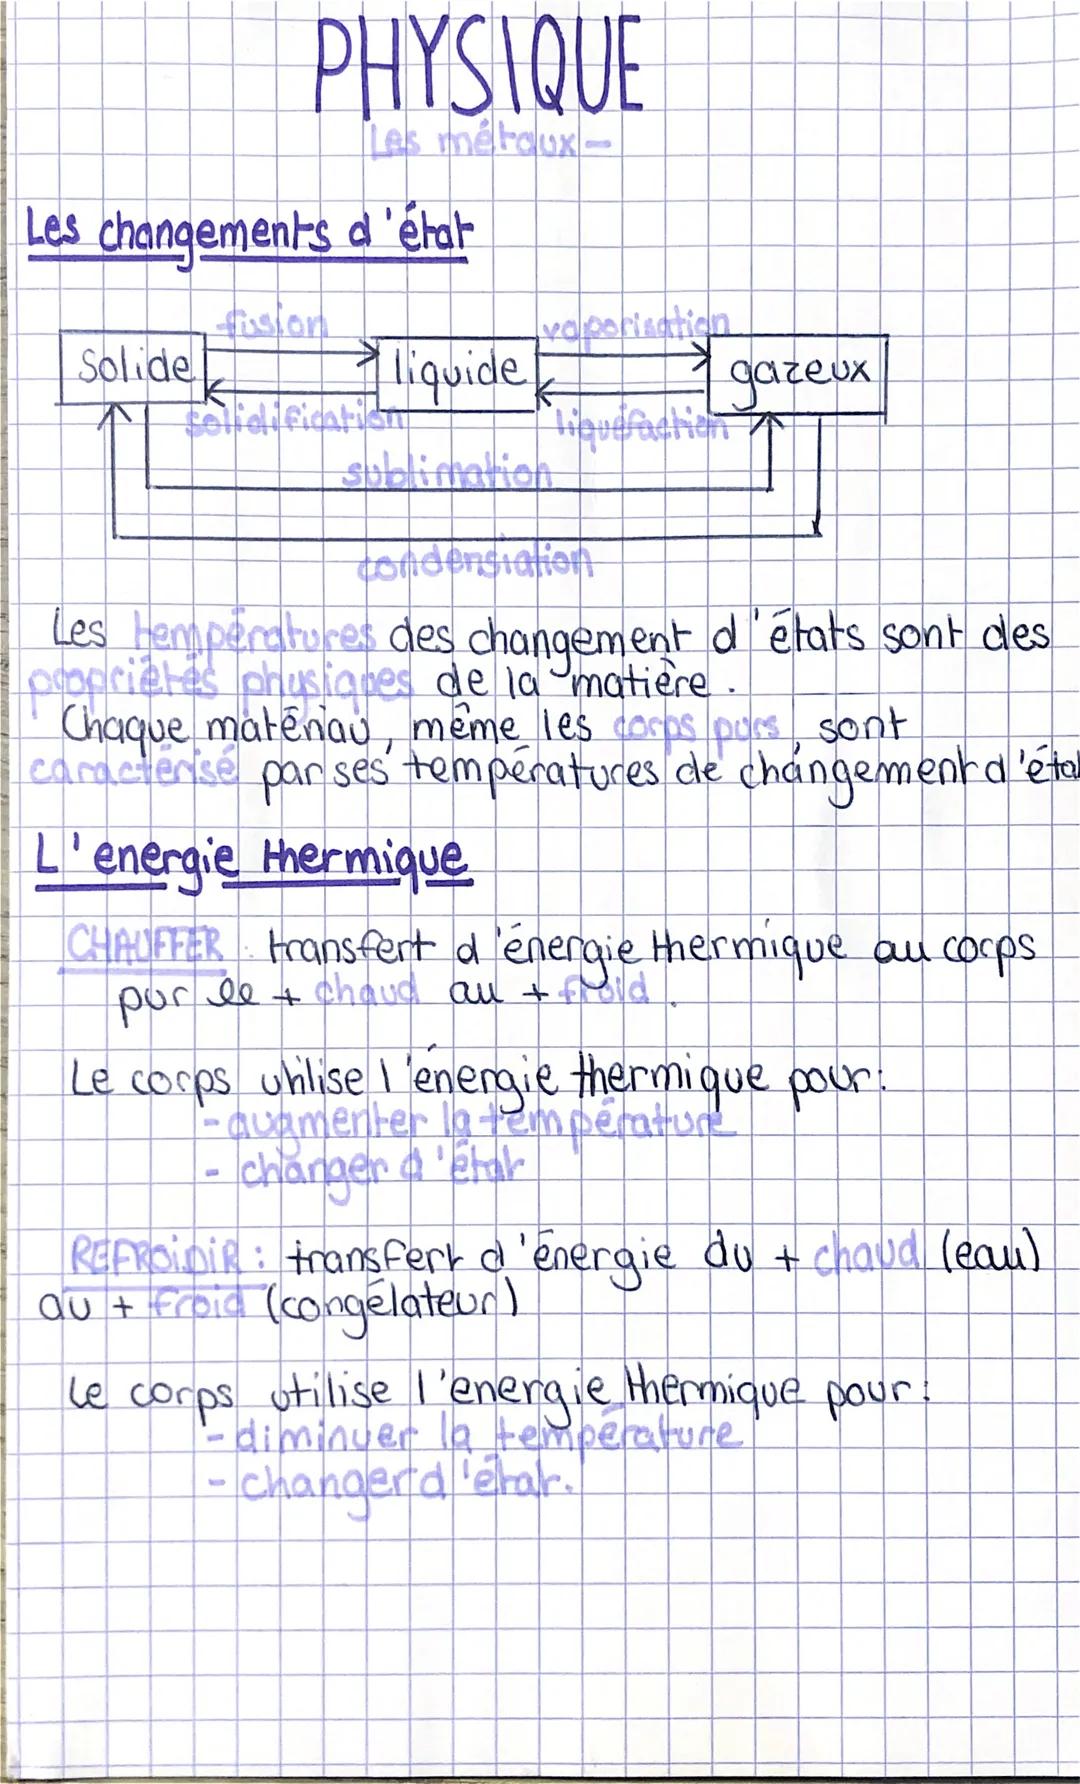 PHYSIQUE
Les métaux -
Les changements d'état
fusion vaporisation
solide liquide gazeux
solidification liquéfaction
sublimation
condensiation
Les températures des changement d'états sont des
propriétés physiques de la matière.
Chaque matériau, même les corps purs, sont
caractérisé par ses températures de changement d'état
L'energie thermique
CHAUFFER : transfert d'énergie thermique au corps
pur le + chaud au + froid.
Le corps utilise l'énergie thermique pour:
- augmenter la température
- changer d'état
REFROiDiR : transfert d'énergie du + chaud (eau)
au + froid (congélateur)
Le corps utilise l'energie thermique pour:
- diminuer la température
- changer d'état.